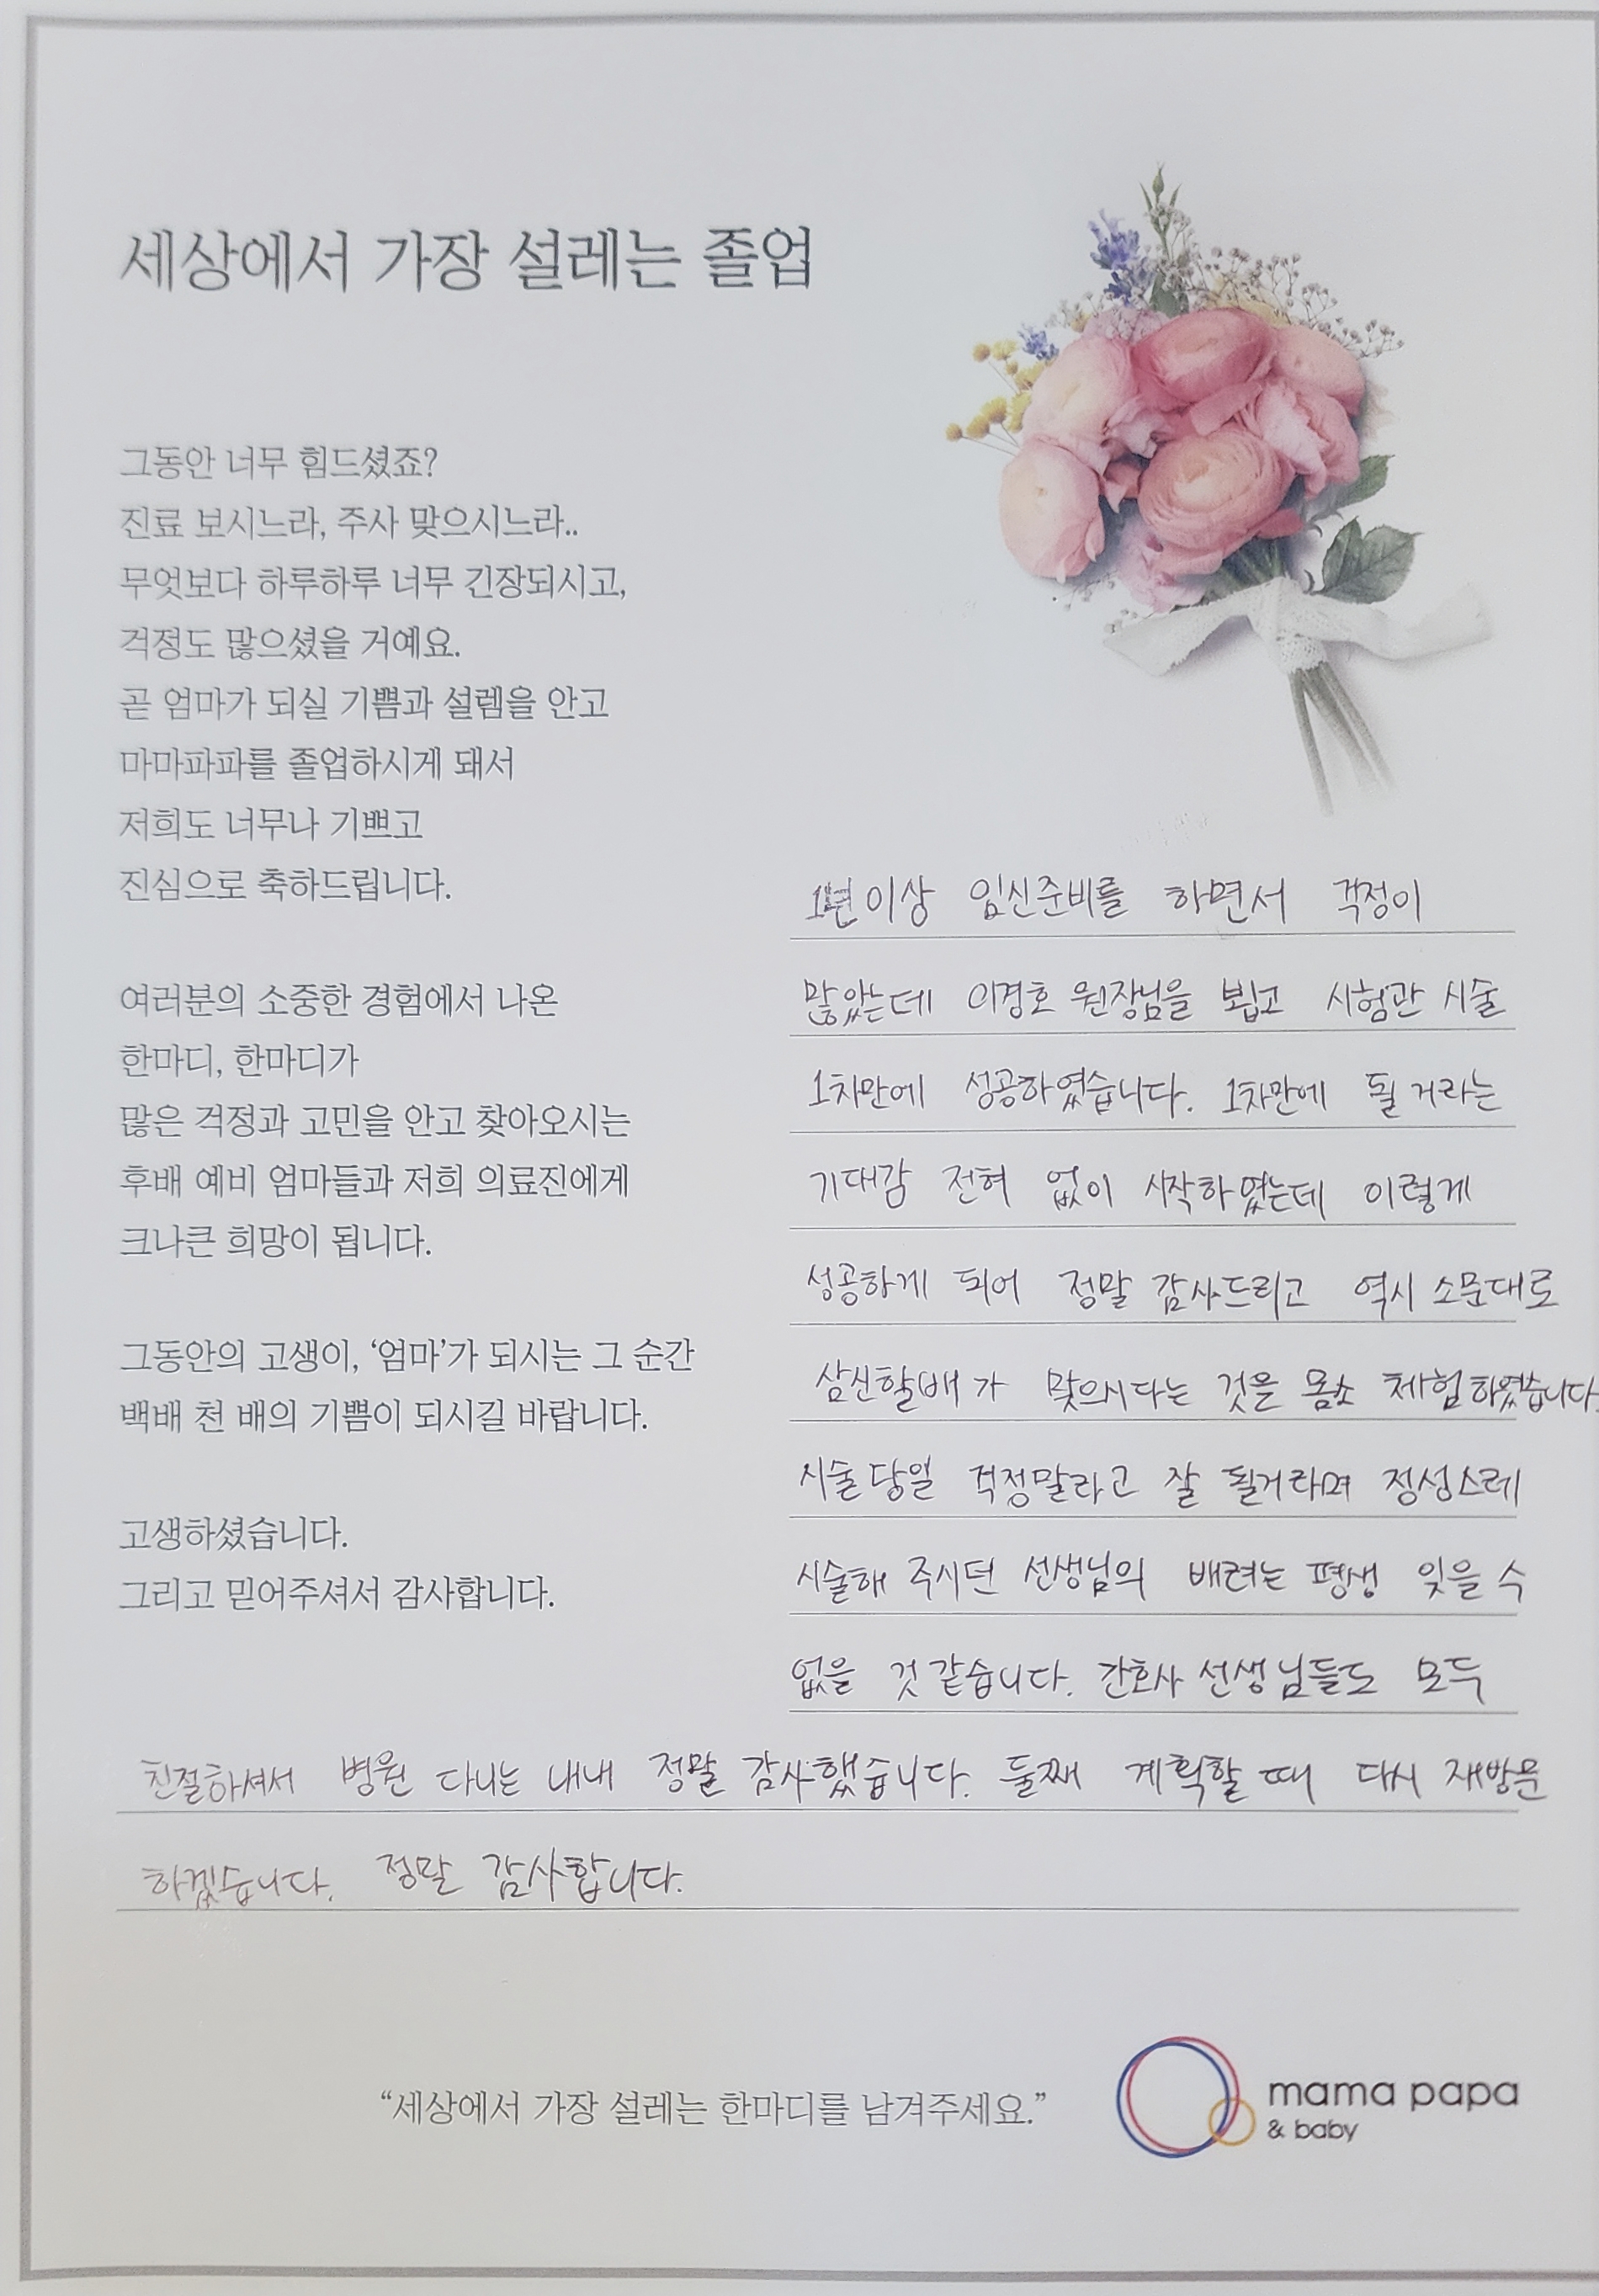 세상에서 가장 설레는 졸업
그동안 너무 힘드셨죠?
진료 보시느라, 주사 맞으시느라..
무엇보다 하루하루 너무 긴장되시고,
걱정도 많으셨을 거예요.
곧 엄마가 되실 기쁨과 설렘을 안고
마마파파를 졸업하시게 돼서
저희도 너무나 기쁘고
진심으로 축하드립니다.
여러분의 소중한 경험에서 나온
한마디, 한마디가
많은 걱정과 고민을 안고 찾아오시는
후배 예비 엄마들과 저희 의료진에게
크나큰 희망이 됩니다.
그동안의 고생이, ‘엄마’가 되시는 그 순간
백배 천 배의 기쁨이 되시길 바랍니다.
고생하셨습니다.
그리고 믿어주셔서 감사합니다.
1년이상 임신준비를 하면서 걱정이
많았는데 이경호 원장님을 뵙고 시험관 시술
1차만에 성공하였습니다. 1차만에 될 거라는
기대감 전혀 없이 시작하였는데 이렇게
성공하게 되어 정말 감사드리고 역시 소문대로
삼신할배가 맞으시다는 것을 몸소 체험하였습니다.
시술당일 걱정말라고 잘 될거라며 정성스레
시술해 주시던 선생님의 배려는 평생 잊을 수
없을 것 같습니다. 간호사 선생님들도 모두
친절하셔서 병원 다니는 내내 정말 감사했습니다. 둘째 계획할 때 다시 재방문
하겠습니다. 정말 감사합니다.
“세상에서 가장 설레는 한마디를 남겨주세요.”
mama papa
& baby